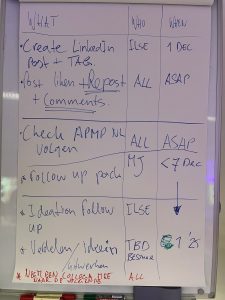 WHAT WHO WHEN
• Create LinkedIn ILSE 1 DEC
Post + TAG
• Post liken + Repost ALL ASAP
+ Comments
• Check APMP NL ALL ASAP
volgen
• Follow up MJ <7 Dec
• Ideation follow ILSE
up
• Verdelen / ideeën TBD
uitwerken BESTUUR 1 '25
* NEEM EEN COLLEGA MEE ALL
NAAR DE VOLGENDE